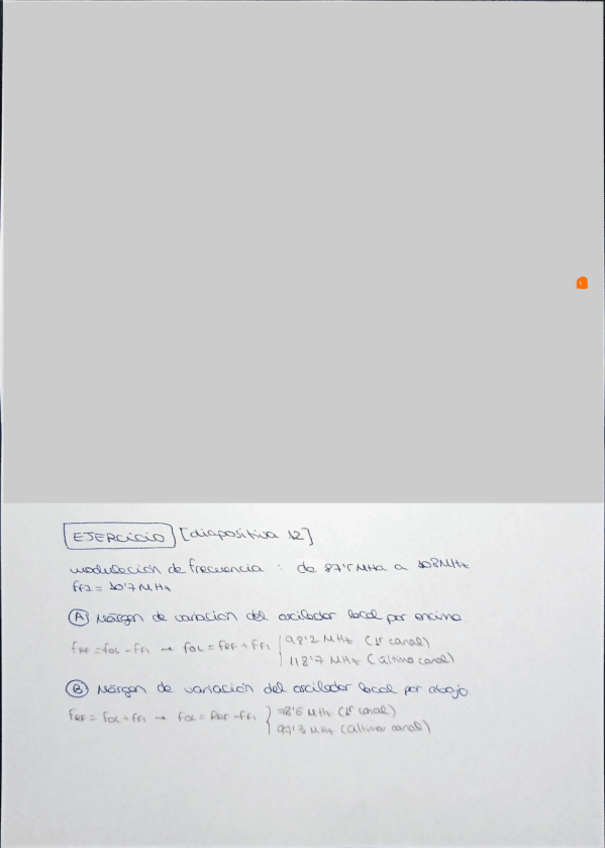 EJERCICIO [diapositiva 12]
modulación de frecuencia : de 87'5 MHz a 108MHz
fFI = 10'7 MHz
Ⓐ Márgen de variación del oscilador local por encima
fRF = fOL - fFI → fOL = fRF + fFI { 98'2 MHz (1º canal)
118'7 MHz (último canal)
Ⓑ Márgen de variación del oscilador local por abajo
fRF = fOL + fFI → fOL = fRF - fFI { 76'6 MHz (1º canal)
97'3 MHz (último canal)